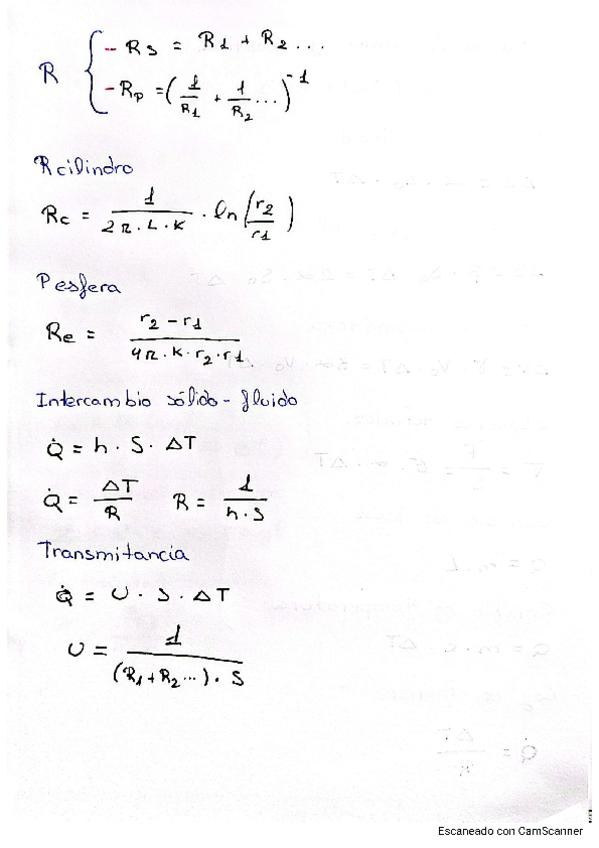 R { - Rs = R1 + R2 ...
- Rp = (1/R1 + 1/R2 ...)^-1
R cilindro
Rc = 1/(2π · L · K) · ln(r2/r1)
R esfera
Re = (r2 - r1)/(4π · K · r2 · r1)
Intercambio sólido - fluido
Q̇ = h · S · ΔT
Q̇ = ΔT/R   R = 1/(h · S)
Transmitancia
Q̇ = U · S · ΔT
U = 1/((R1 + R2 ...) · S)
Escaneado con CamScanner